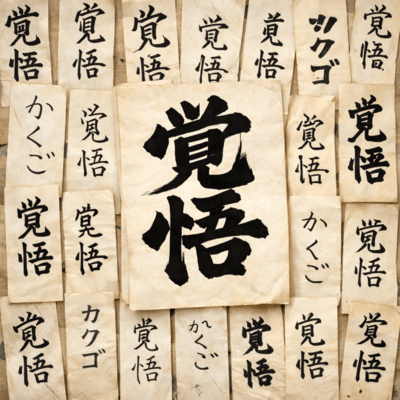 覚悟
覚悟
覚悟
覚悟
覚悟
ツクゴ
覚悟
かくご
覚悟
覚悟
覚悟
覚悟
覚悟
覚悟
かくご
覚悟
覚悟
カクゴ
覚悟
かくご
覚悟
覚悟
覚悟